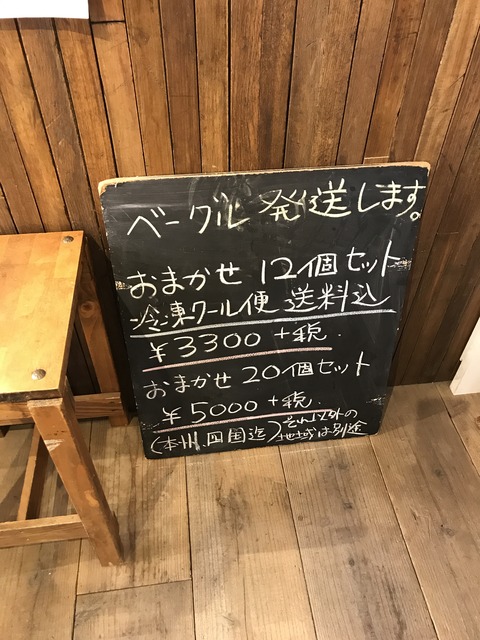 ベーグル 発送します。
おまかせ 12個セット
冷凍クール便 送料込
¥3300 +税.
おまかせ 20個セット
¥5000 +税.
(本州、四国迄) それ以外の
地域は別途